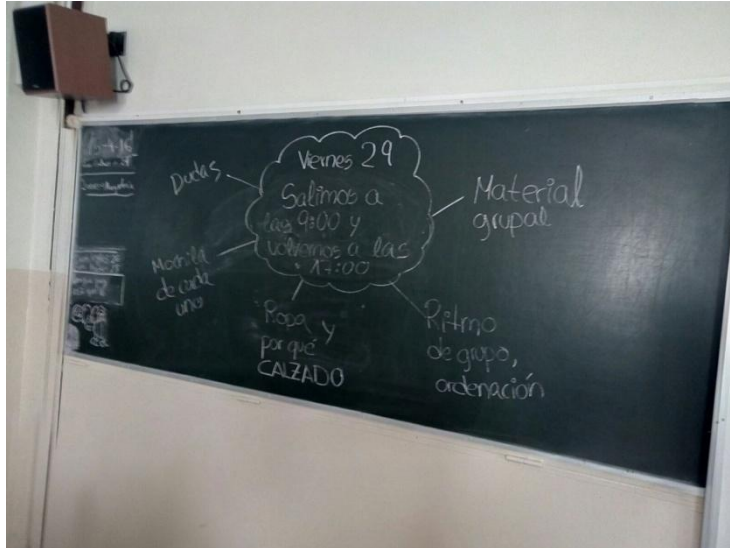 Viernes 29
Salimos a
las 9:00 y
volvemos a las
17:00
Dudas
Material
grupal
Mochila
de cada
uno
Ropa y
por qué
CALZADO
Ritmo
de grupo,
ordenación